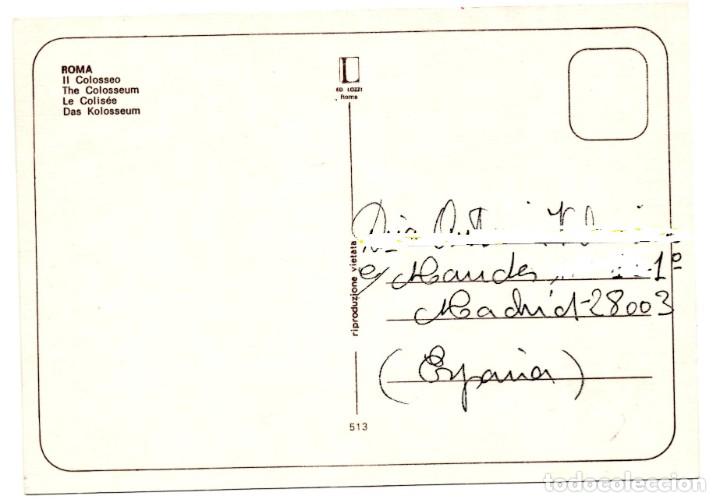 ROMA
Il Colosseo
The Colosseum
Le Colisée
Das Kolosseum
L
ED LOZZI
Roma
riproduzione vietata
513
1º
Madrid-28003
(España)
todocoleccion.net